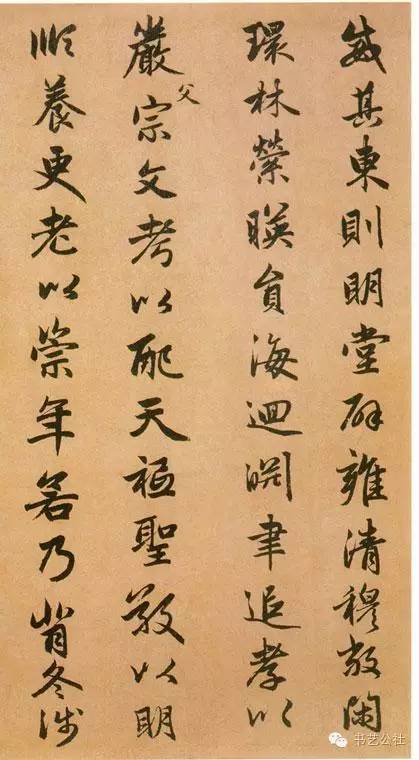 威其東則明堂辟雍清穆敞閑
環林縈暎員海迴淵聿追孝以
嚴父宗文考以配天祗聖敬以明
順養更老以崇年若乃背冬涉
书艺公社